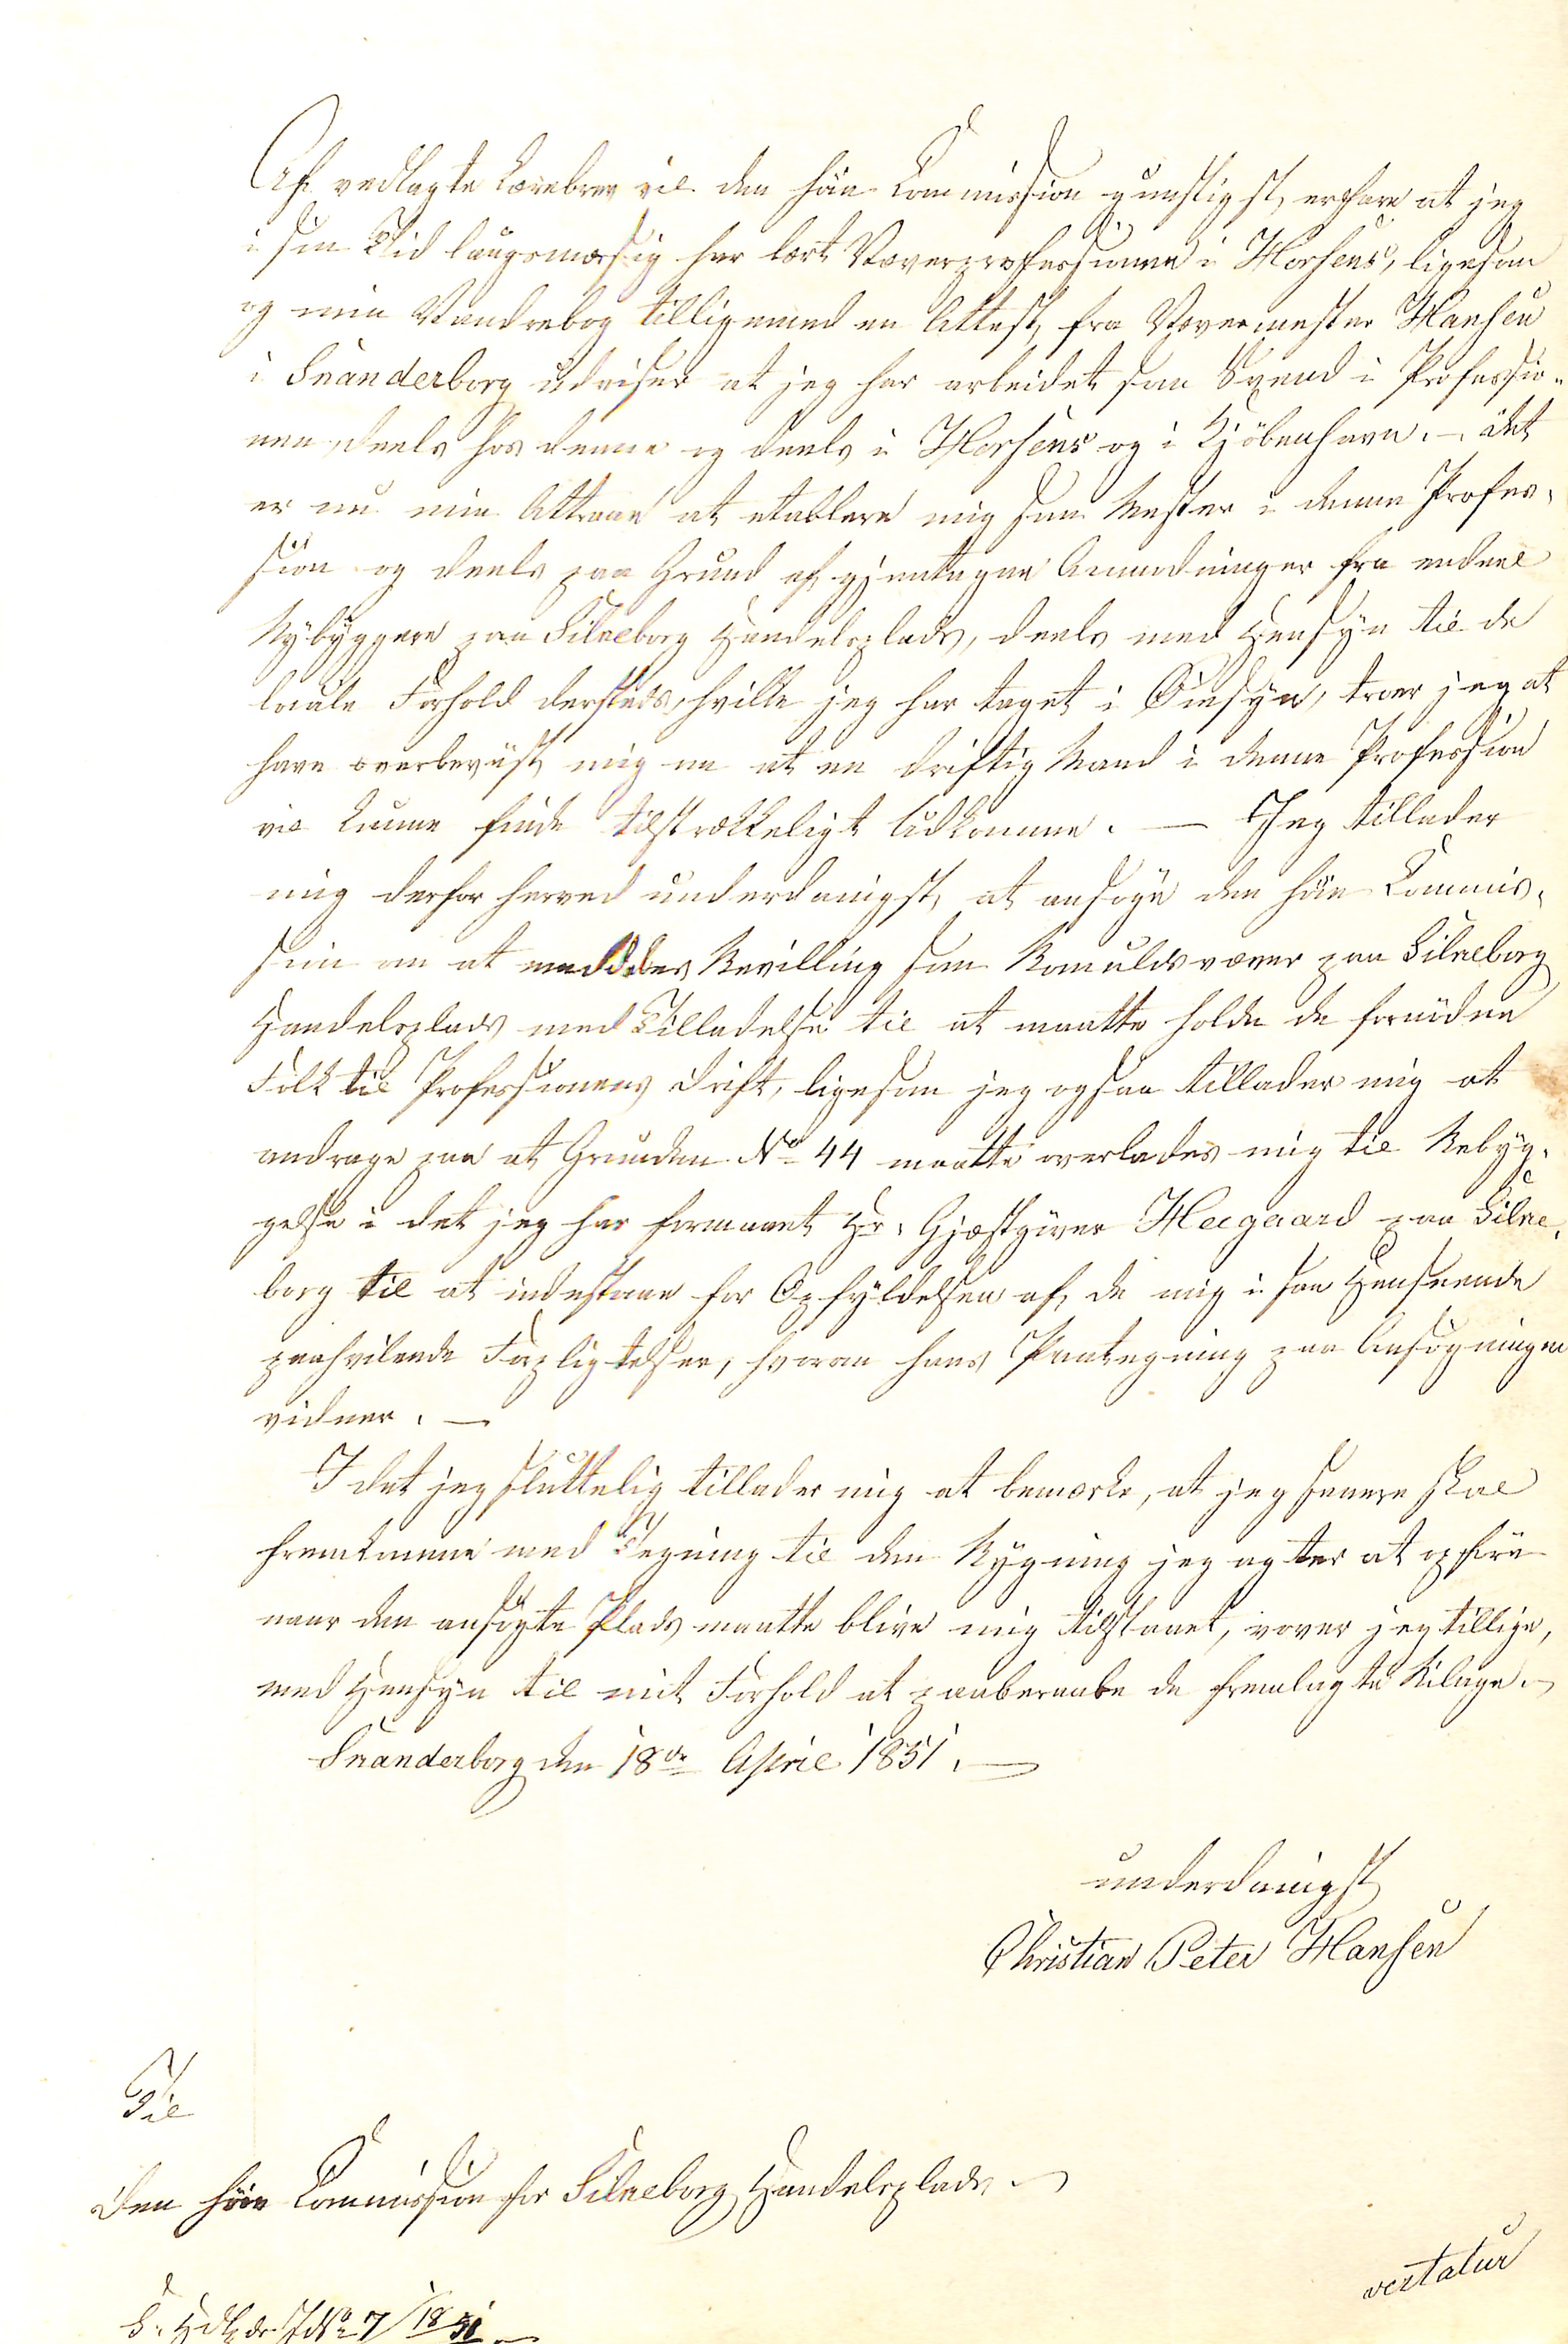 Af vedlagte Lærebrev vil den høie Commission gunstigst erfare at jeg
i sin Tid laugsmæssig har lært Væverprofessionen i Horsens, ligesom
og min Vandrebog tilligemed en Attest fra Vævermester Hansen
i Skanderborg udviser at jeg har arbeidet som Svend i Professio-
nen, deels hos denne og deels i Horsens og i Kjöbenhavn. – Det
er nu min Attraae at etablere mig som Mester i denne Profes-
sion og deels paa Grund af gjentagne Anmodninger fra endeel
Nybyggere paa Silkeborg Handelsplads, deels med Hensyn til de
locale Forhold dersteds, hvilke jeg har taget i Öiesyn, troer jeg at
have overbeviist mig om at en driftig Mand i denne Profession
vil kunne finde tilstrækkeligt Udkomme. — Jeg tillader
mig derfor herved underdanigst at ansöge den höie Commis-
sion om at meddeles Bevilling som Bomuldsvæver paa Silkeborg
Handelsplads med Tilladelse til at maatte holde de fornödne
Folk til Professionens Drift, ligesom jeg ogsaa tillader mig at
andrage paa at Grunden No 44 maatte overlades mig til Bebyg-
gelse i det jeg har formaaet Hr. Gjæstgiver Heegaard paa Silke-
borg til at indestaae for Opfyldelsen af de mig i saa Henseende
paahvilende Forpligtelser, hvorom hans Paategning paa Ansögningen
vidner. —
I det jeg sluttelig tillader mig at bemærke, at jeg senere skal
fremkomme med Tegning til den Bygning jeg agter at opföre
naar den ansögte Plads maatte blive mig tilstaaet, vover jeg tillige,
med Hensyn til mit Forhold at paaberaabe de fremlagte Bilage. –
Skanderborg den 18de April 1851. —
underdanigst
Christian Peter Hansen
Til
Den höie Commission for Silkeborg Handelsplads. –
vertatur
S. Hdlpds. J No 7/1851